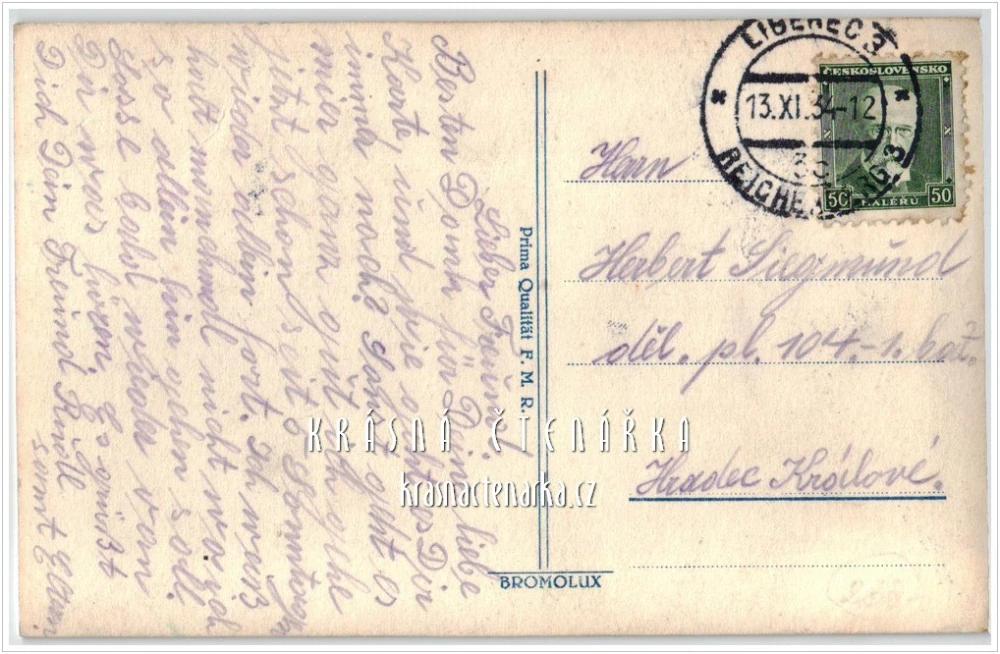 Lieber Freund!
Besten Dank für Deine liebe
Karte, und wie geht es Dir
immer noch? Gahs geht es
mir ganz gut. Ich gehe
jetzt schon seit
wieder fort. Ich weiß
halt manchmal nicht wo ich
so allein hin gehen soll.
Lasse bald wieder von
Dir was hören. Es grüßt
Dich Dein Freund Rudl
samt Eltern.
Prima Qualität F. M. R.
BROMOLUX
LIBEREC 3
13.XI.34-12
3c
REICHENBERG 3
ČESKOSLOVENSKO
50 HALÉRU 50
Herrn
Herbert Siegmund
děl. pl. 104.-1. bat.
Hradec Králové.
KRÁSNÁ ČTENÁŘKA
krasnactenarka.cz